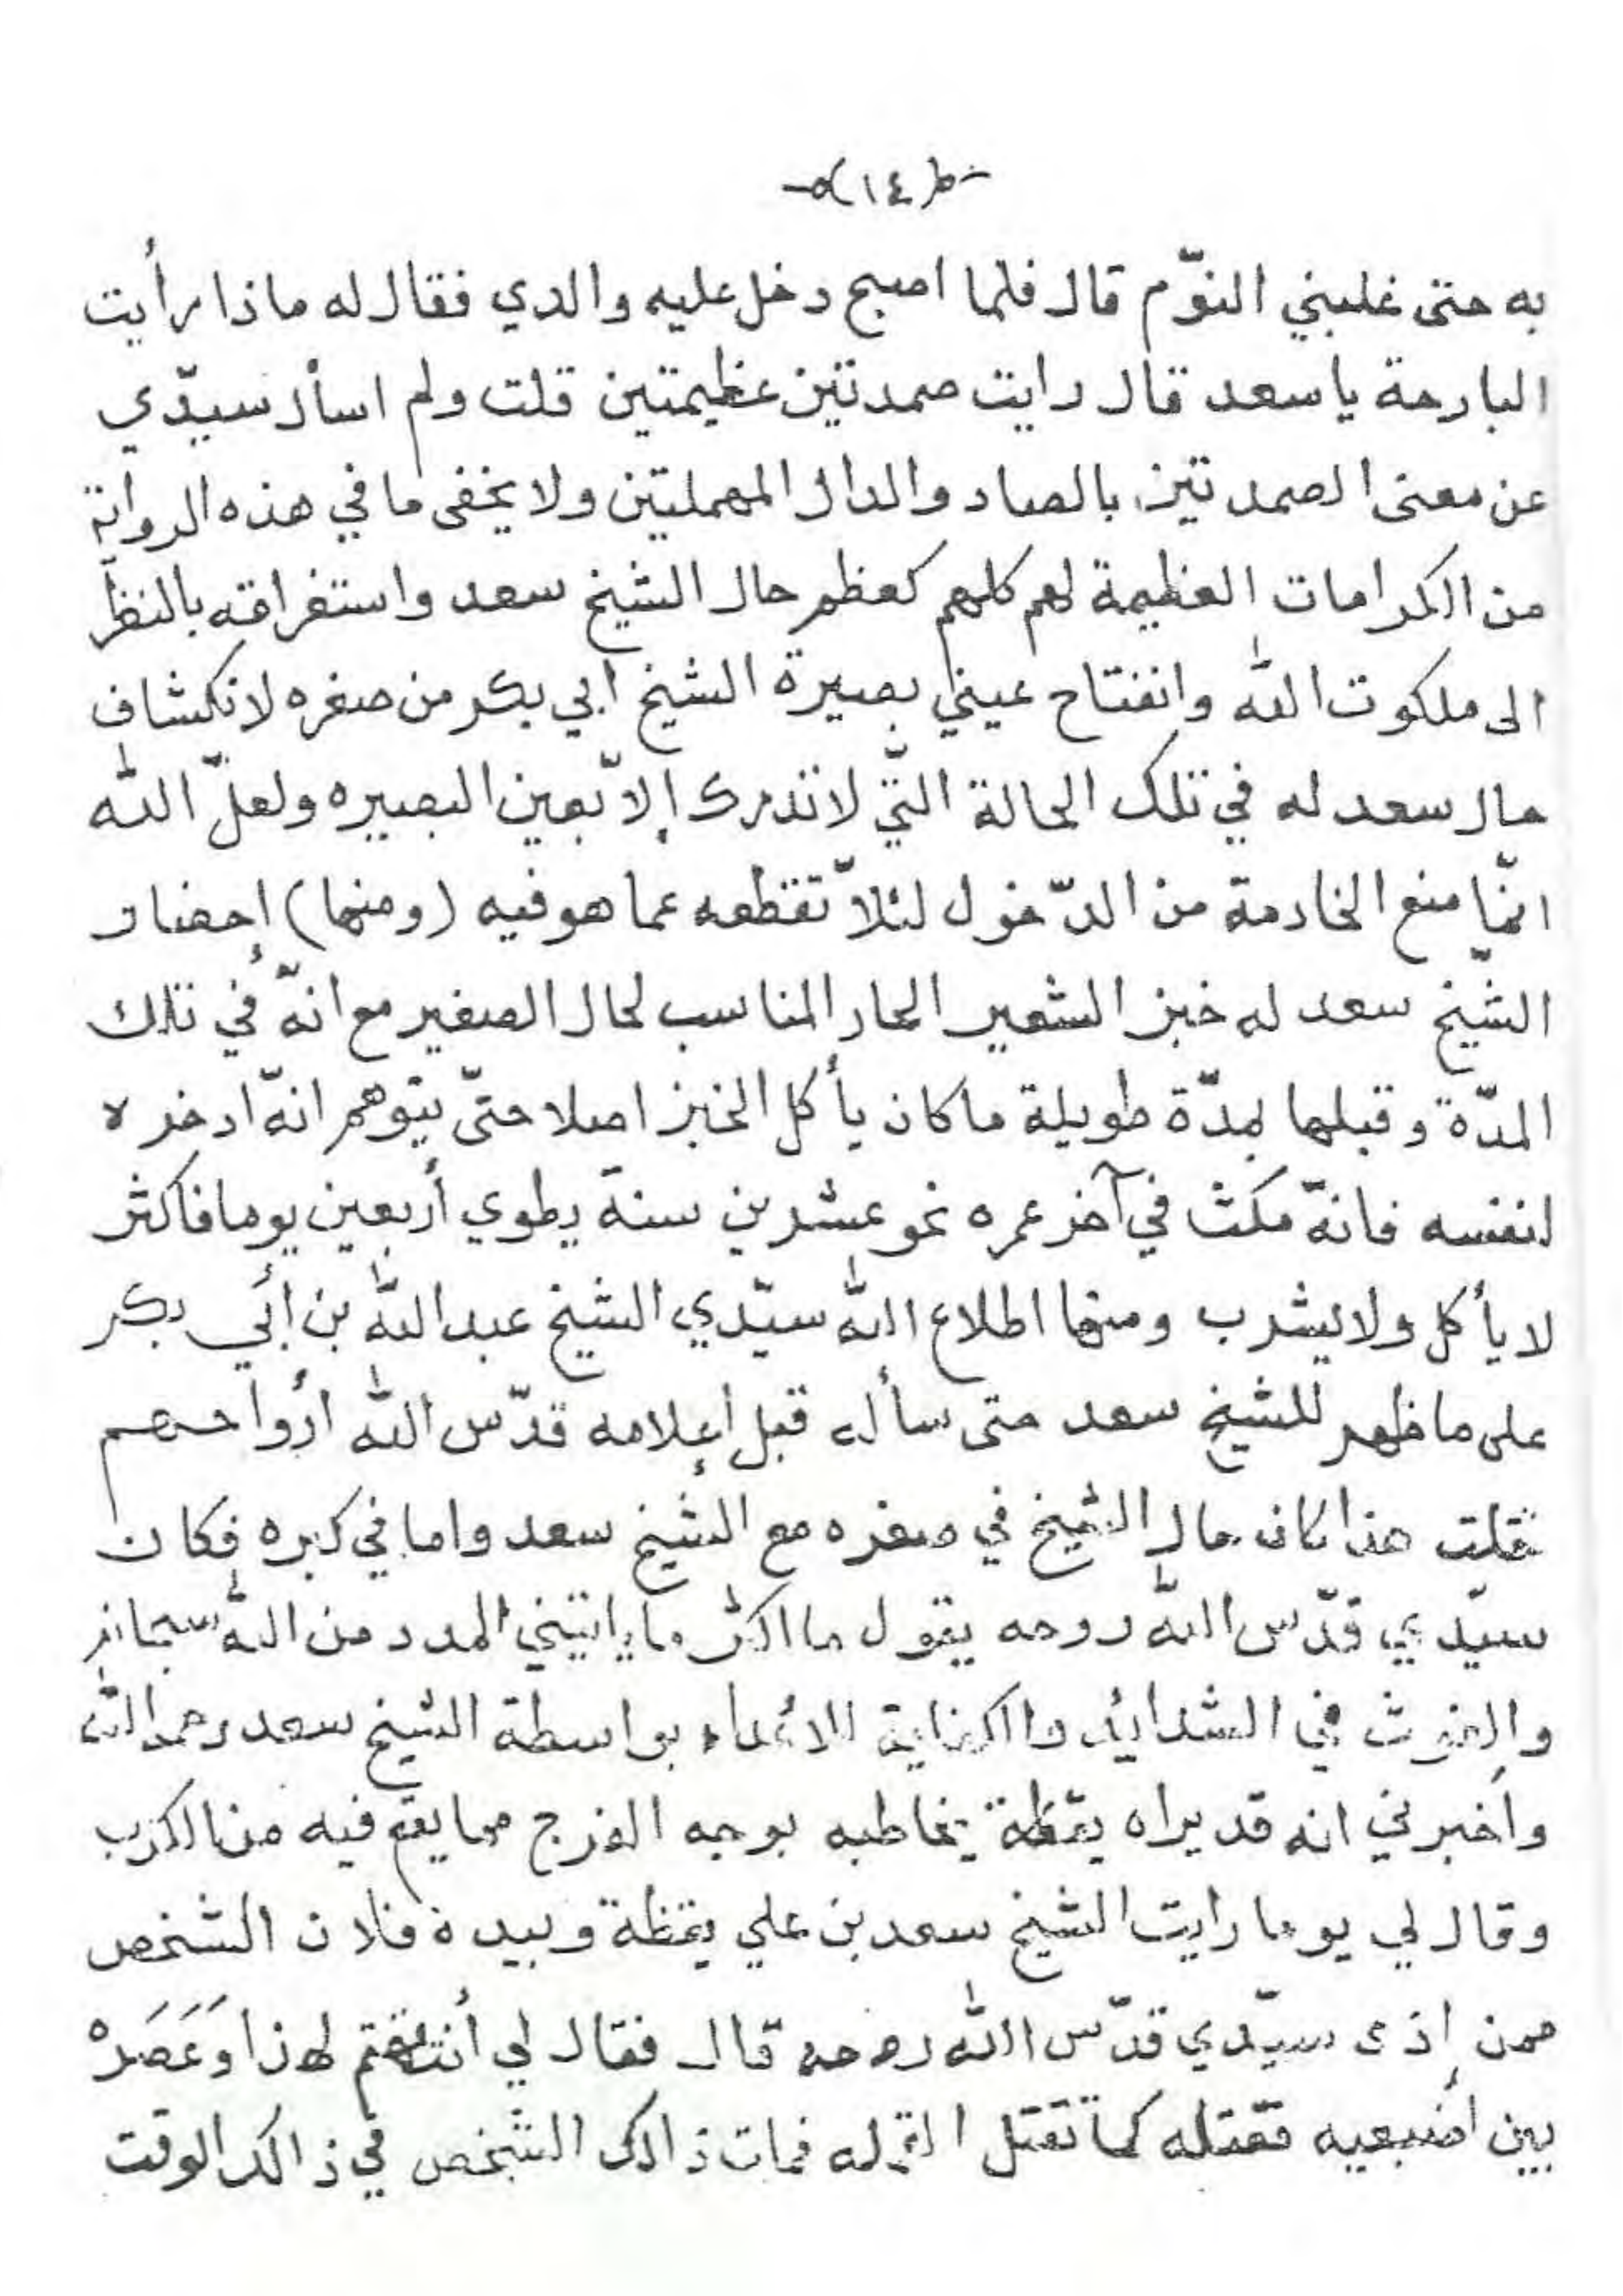 (١٤)
به حتى غلبني النوّم قال فلما اصبح دخل عليه والدي فقال له ماذا رأيت
البارحة يا سعد قال رايت صمدتين عظيمتين قلت ولم اسأل سيدّي
عن معنى الصمدتين بالصاد والدال المهملتين ولا يخفى ما في هذه الرواية
من الكرامات العظيمة لهم كلهم كعظم حال الشيخ سعد واستغراقه بالنظر
الى ملكوت الله وانفتاح عيني بصيرة الشيخ ابي بكر من صغره لانكشاف
حال سعد له في تلك الحالة التّي لا تدرك إلاّ بعين البصيره ولعلّ الله
انمّا منع الخادمة من الدّخول لئلاّ تقطعه عما هو فيه (ومنها) إحضار
الشّيخ سعد له خبز الشعير الحار المناسب لحال الصغير مع انهّ في تلك
المدّة وقبلها بمدّة طويلة ما كان يأكل الخبز اصلا حتىّ يتوهم انهّ ادخره
لنفسه فانهّ مكث في آخر عمره نحو عشرين سنة يطوي أربعين يوما فاكثر
لا يأكل ولا يشرب ومنها اطلاع الله سيّدي الشيخ عبد الله بن أبي بكر
على ما ظهر للشيخ سعد حتى سأله قبل إعلامه قدّس الله أرواحهم
قلت هذا كان حال الشيخ في صغره مع الشيخ سعد واما في كبره فكان
سيّدي قدّس الله روحه يقول ما اكثر ما يأتيني المدد من الله سبحانه
والغوث في الشدائد والكفاية للاعداء بواسطة الشيخ سعد رحمه الله
واخبرني انه قد يراه يقظة يخاطبه بوجه الفرج مما يقع فيه من الكرب
وقال لي يوما رايت الشيخ سعد بن علي يقظة وبيده فلان الشخص
ممن إذى سيّدي قدّس الله روحه قال فقال لي أنتقم لهذا وَعَصَرهْ
بين اصبعيه فقتله كما تقتل القمله فمات ذالك الشخص في ذالك الوقت